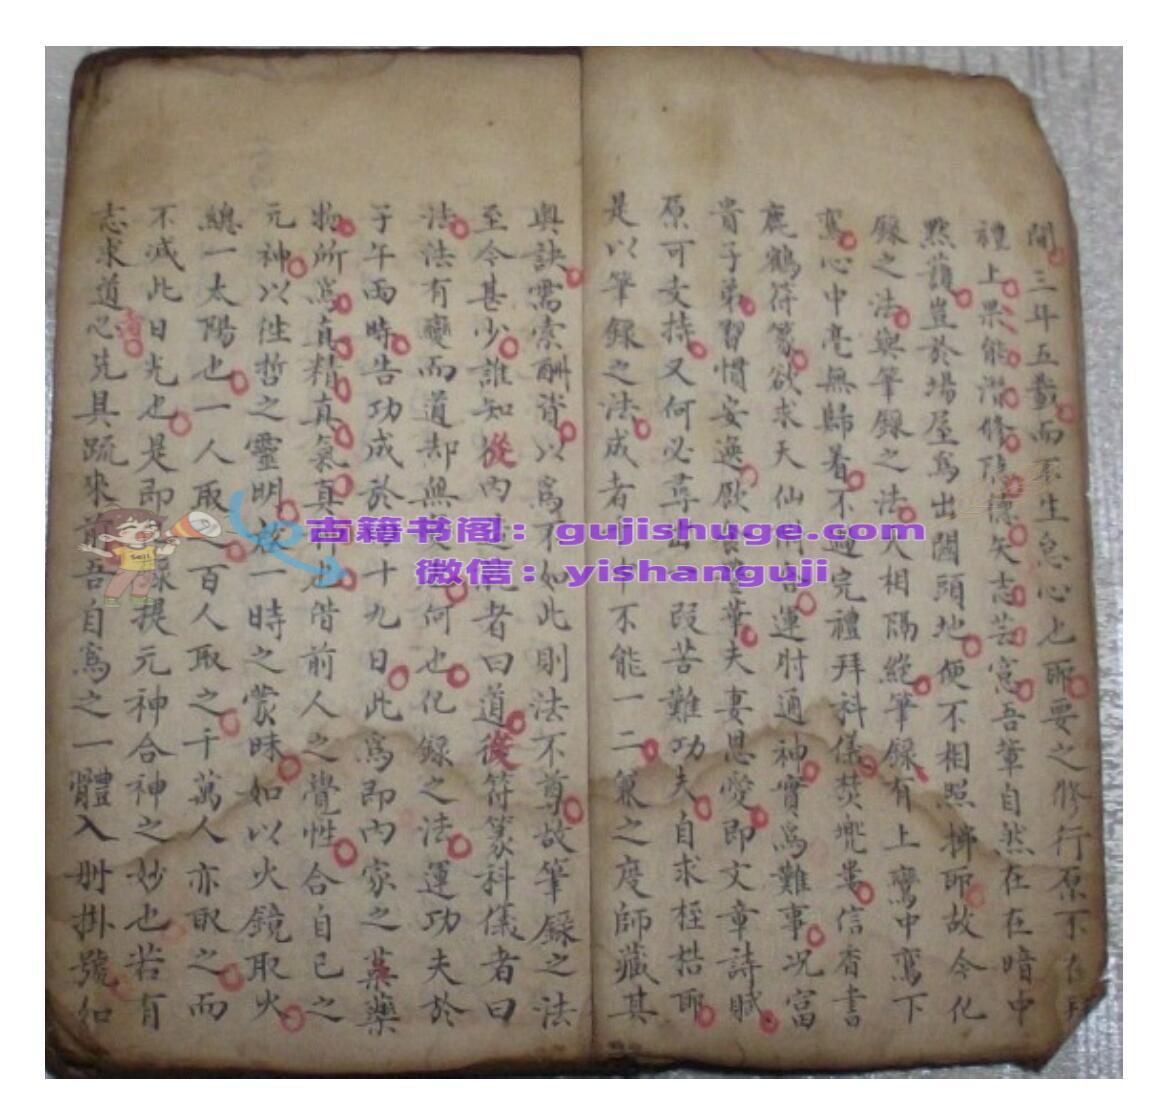 間三年五載而不生怠心也耶要之修行原不在
禮上果能潛修陰德矢志芸窓吾輩自然在在暗中
默護豈於場屋爲出闈頭地便不相照拂耶故今化
錄之法與筆錄之法大相隔絕筆錄有上鸞中鸞下
鸞心中毫無歸着不過完禮拜科儀焚兜婁信香書
鹿鶴符篆欲求天仙運肘通神實爲難事况富
貴子弟習慣安逸華夫妻恩愛即文章詩賦
原可支持又何必尋段苦難功夫自求桎梏耶
是以筆錄之法成者不能一二兼之度師藏其
奥訣需索酬資以爲不如此則法不尊故筆錄之法
至今甚少誰知從内者曰道從符篆科儀者曰
法法有變而道却無何也化錄之法運功夫於
子午兩時告功成於十九日此爲即内家之藥
物所爲真精真氣真借前人之覺性合自己之
元神以性哲之靈明一時之蒙昧如以火鏡取火
總一太陽也一人取百人取之千萬人亦取之而
不減此日光也是即提元神合神之妙也若有
志求道者心先具疏來前吾自爲之一體入册掛號如
古籍书阁：gujishuge.com
微信：yishanguji